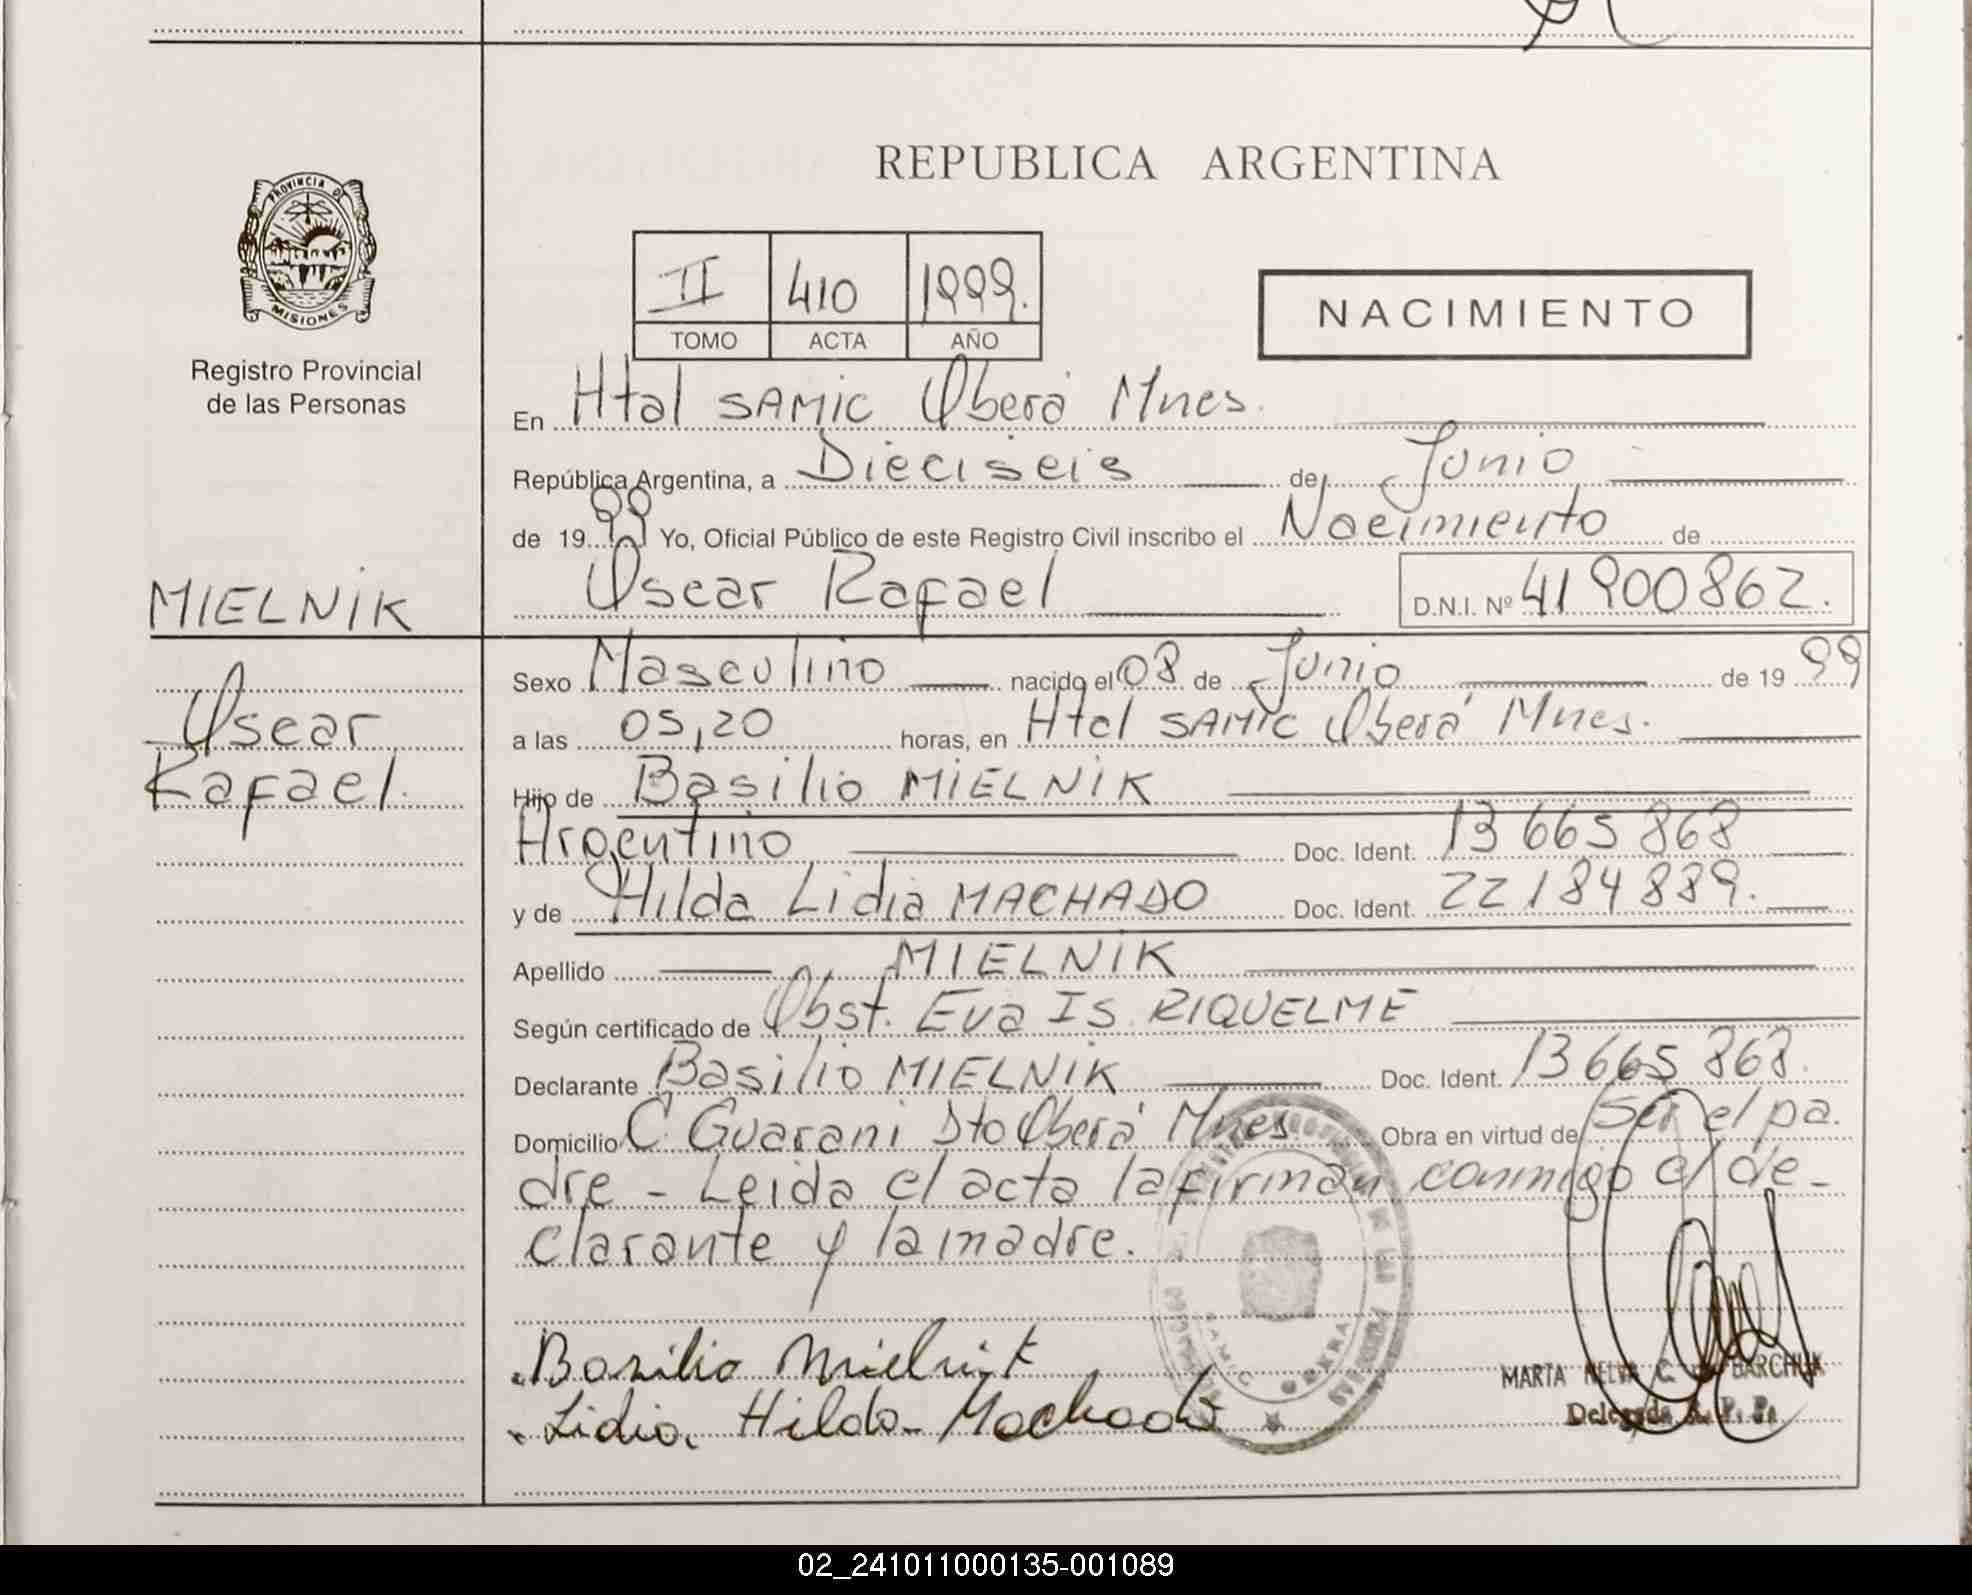 REPUBLICA ARGENTINA
PROVINCIA DE
MISIONES
Registro Provincial
de las Personas
II 410 1999.
TOMO ACTA AÑO
NACIMIENTO
En Htal SAMIC Oberá Mnes.
República Argentina, a Dieciseis de Junio
de 1999 Yo, Oficial Público de este Registro Civil inscribo el Nacimiento de
Oscar Rafael D.N.I. Nº 41900862.
MIELNIK
Oscar
Rafael.
Sexo Masculino nacido el 08 de Junio de 1999
a las 05,20 horas, en Htal SAMIC Oberá Mnes.
Hijo de Basilio MIELNIK
Argentino Doc. Ident. 13665868
y de Hilda Lidia MACHADO Doc. Ident. 22184889.
Apellido MIELNIK
Según certificado de Obst. Eva IS. RIQUELME
Declarante Basilio MIELNIK Doc. Ident. 13665868.
Domicilio C. Guarani Dto Oberá Mnes Obra en virtud de ser el pa.
dre - Leida el acta la firman conmigo el de-
clarante y la madre.
Basilio Mielnik
Lidia Hilda Machado
MARTA C. BARCHUK
Delegada R. P. P.
02_241011000135-001089